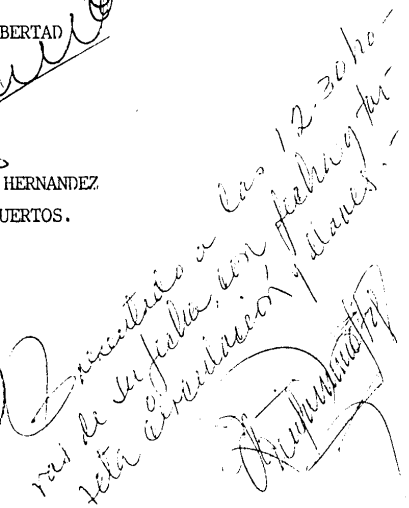 BERTAD
HERNANDEZ
UERTOS.
a las 12-30 ho-
ras de su fecha, con fecha y tar-
jeta circulación y llaves.-